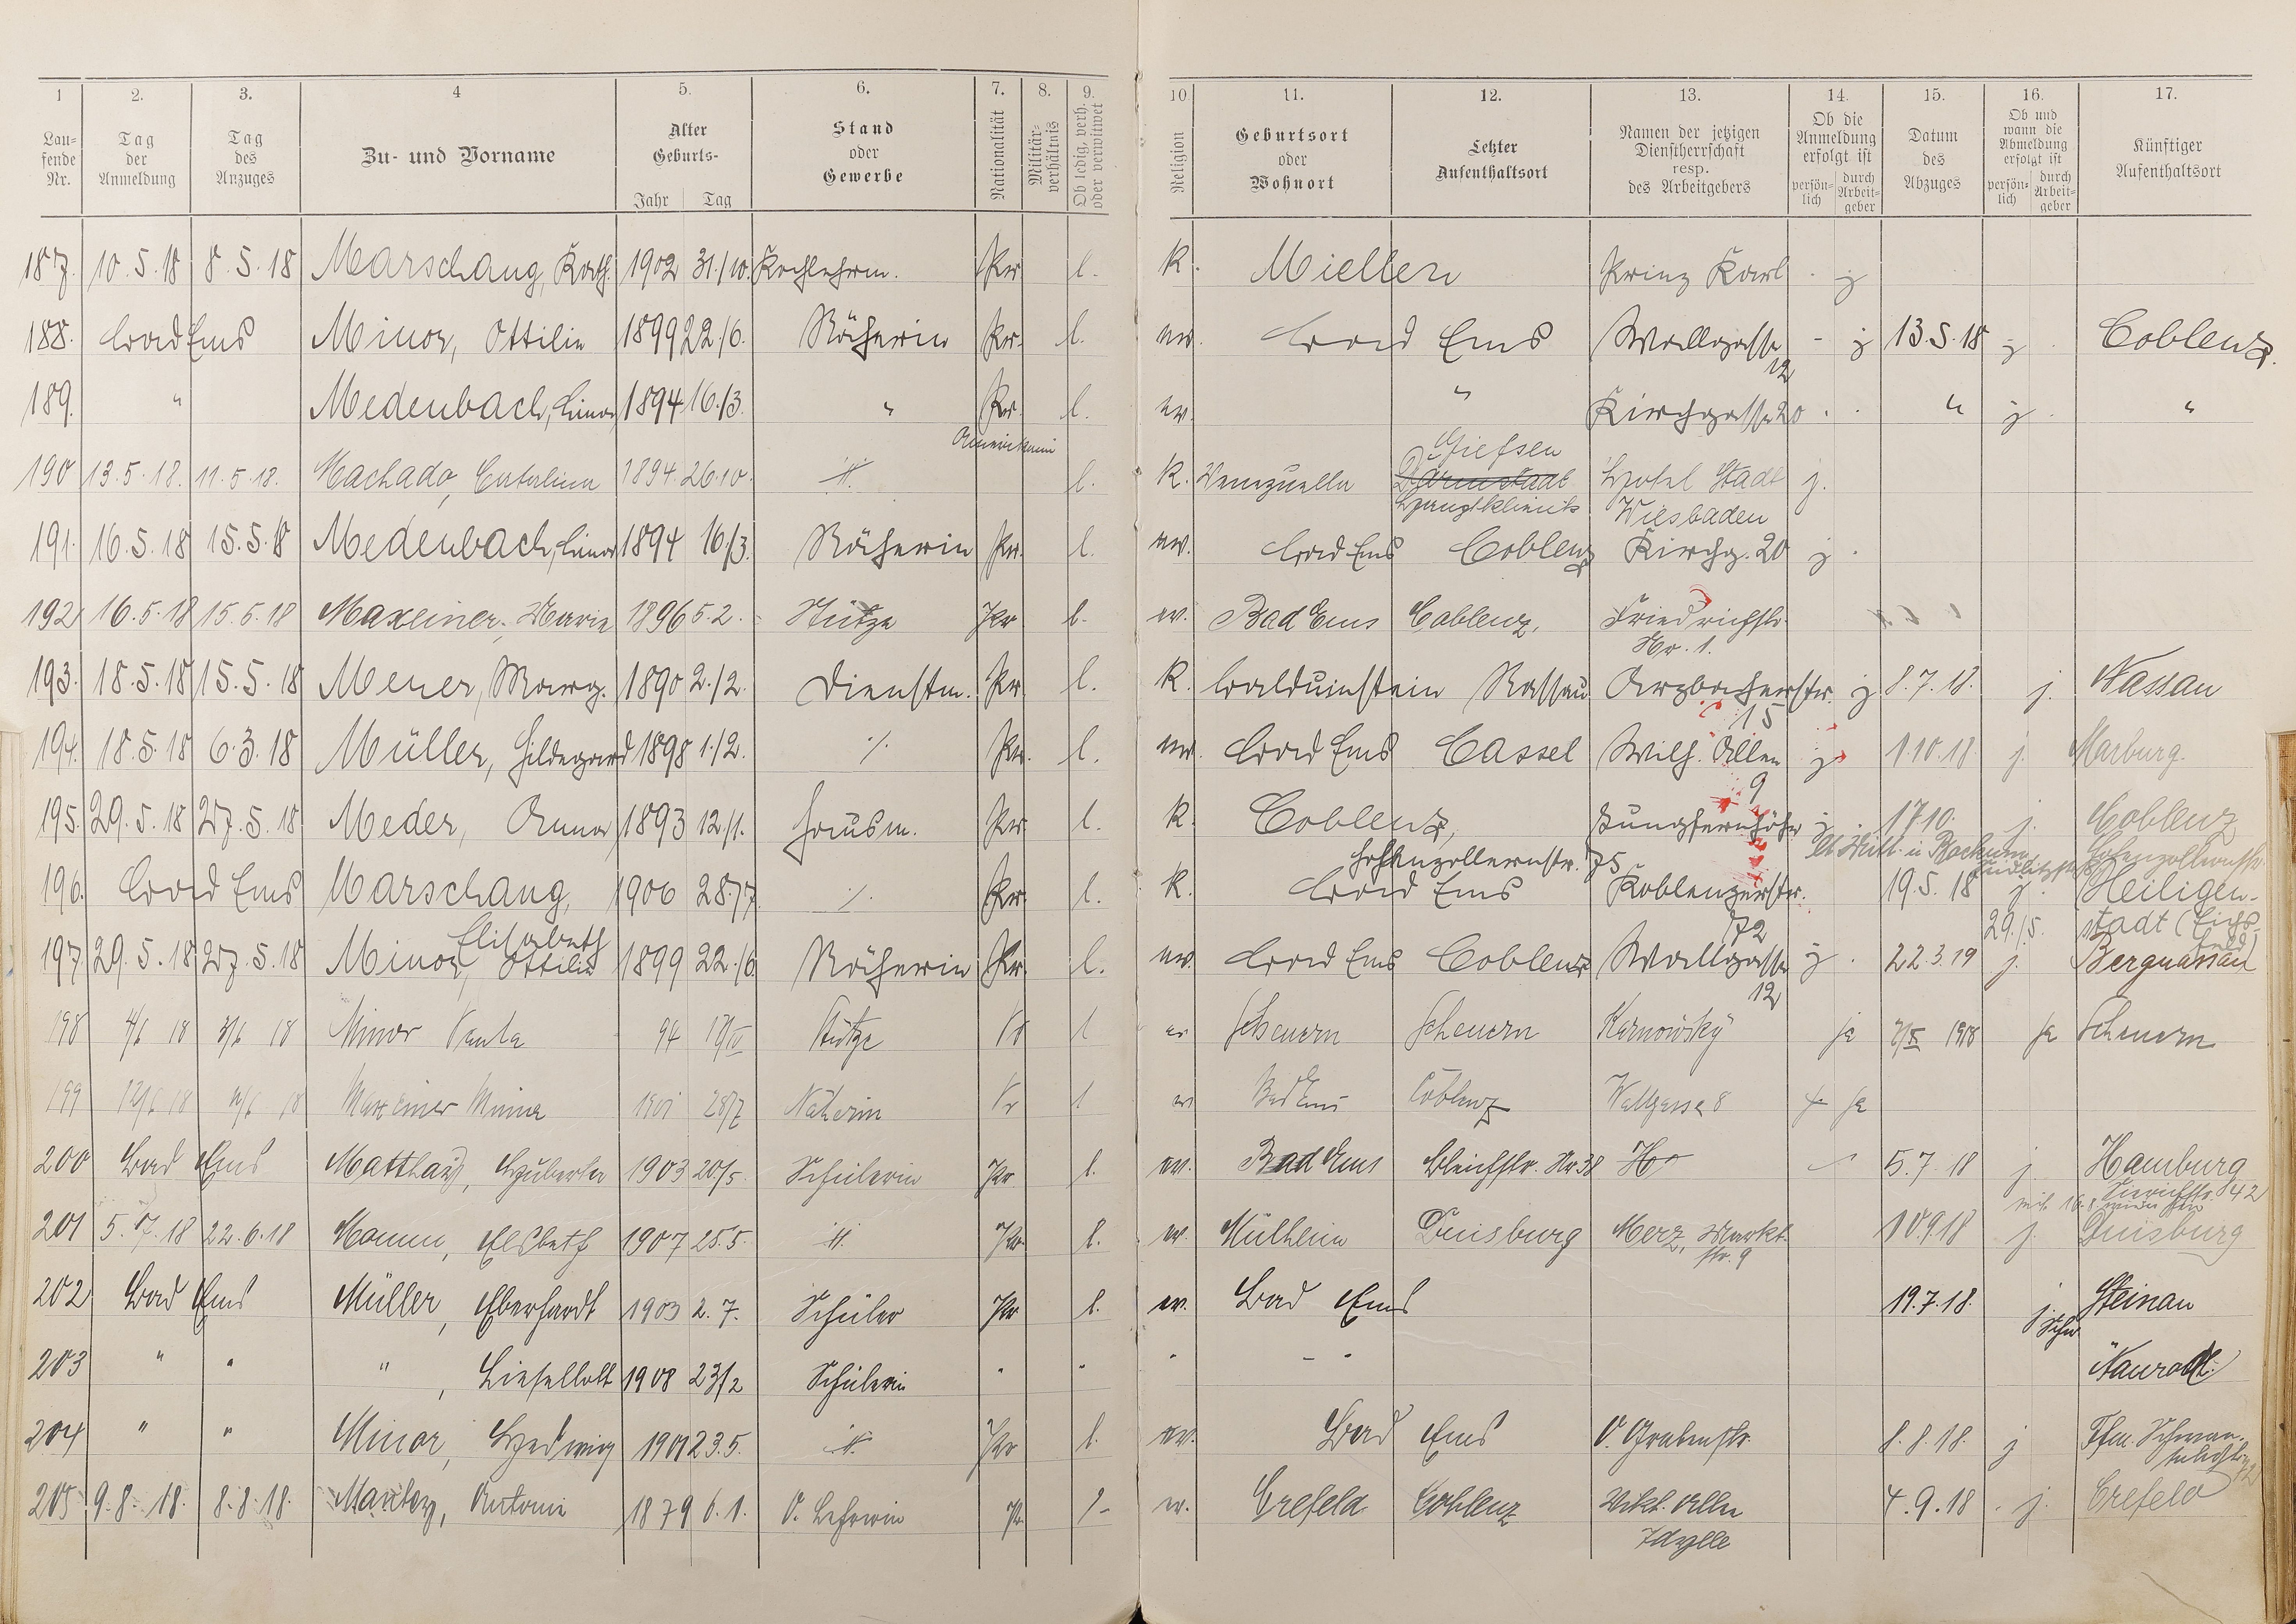 1 2. 3. 4 5. 6. 7. 8. 9. 10. 11. 12. 13. 14. 15. 16. 17.
Lau-
fende
Nr.
Tag
der
Anmeldung
Tag
des
Anzuges
Zu- und Vorname
Alter
Geburts-
Jahr Tag
Stand
oder
Gewerbe
Nationalität
Militär-
verhältnis
Ob ledig, verh.
oder verwitwet
Religion
Geburtsort
oder
Wohnort
Letzter
Aufenthaltsort
Namen der jetzigen
Dienstherrschaft
resp.
des Arbeitgebers
Ob die
Anmeldung
erfolgt ist
persön-
lich
durch
Arbeit-
geber
Datum
des
Abzuges
Ob und
wann die
Abmeldung
erfolgt ist
persön-
lich
durch
Arbeit-
geber
Künftiger
Aufenthaltsort
187. 10.5.18 8.5.18 Marschang, Kath. 1902 31./10. Kochlehrm. Pr. l. K. Miellen Prinz Karl j
188. Bad Ems Minor, Ottilie 1899 22./6. Näherin Pr. l. ev. Bad Ems Wallgasse - j 13.5.18 j Coblenz.
12
189. " Medenbach, Lina 1894 16./3. " Pr. l. ev. " Kirchgasse 20 " j "
Amerikanerin
Giefsen
190 13.5.18. 11.5.18. Machado, Catalina 1894. 26.10. l. K. Venezuella Darmstadt Hotel Stadt j.
Wiesbaden
191. 16.5.18 15.5.18 Medenbach, Lina 1894 16./3. Näherin Pr. l. ev. Bad Ems Coblenz Kirchg. 20 j
192 16.5.18 15.5.18 Maxeiner, Marie 1896 5.2. Stütze Pr l. ev. Bad Ems Coblenz, Friedrichstr.
Nr. 1.
193. 18.5.18 15.5.18 Meuer, Marg. 1890 2./2. Dienstm. Pr. l. K. Balduinstein Nassau Arzbacherstr. j 8.7.18. j. Nassau
15
194. 18.5.18 6.3.18 Müller, Hildegard 1898 1./2. ./. Pr. l. ev. Bad Ems Cassel Wilh. Allee j 1.10.18 j. Marburg.
9
195. 29.5.18 27.5.18 Meder, Anna 1893 12./1. Hausm. Pr. l. K. Coblenz, Jungfernhöhe j. 17.10. j. Coblenz
Hohenzollernstr. 75 Hohenzollernstr.
196. Bad Ems Marschang, 1906 28./7. ./. Pr. l. K. Bad Ems Koblenzerstr. 19.5.18 j Heiligen-
Elisabeth 72 29./5. stadt (Eichs-
feld)
197 29.5.18 27.5.18 Minor, Ottilie 1899 22./6. Näherin Pr. l. ev. Bad Ems Coblenz Wallgasse j. 22.3.19 j. Bergnassau
12
198 4/6 18 3/6 18 Minor Paula 94 17/IV Stütze Pr l ev Scheuern Scheuern Karnowsky ja 7/X 1918 ja Scheuern
199 12/6 18 18 Maxeiner Minna 1901 28/7 Näherin Pr l ev Bad Ems Coblenz Wallgasse 8 ja
200 Bad Ems Matthäus, Huberta 1903 20/5. Schülerin Pr. l. ev. Bad Ems Bleichstr. Nr 38 5.7.18 j. Hamburg
Sierichstr. 42
201 5.7.18 22.6.18 Mamm, Elsbeth 1907 25.5. Pr. l. ev. Mülheim Duisburg Merz, Markt- 10.9.18 j. Duisburg
str. 9
202 Bad Ems Müller, Eberhardt 1903 2.7. Schüler Pr l. ev. Bad Ems 19.7.18. j. Steinau
203 " " ", Lieselott 1908 23/2 Schülerin " " " - " Naurod
204 " " Minor, Hedwig 1901 23.5. Pr l. ev. Bad Ems V. Grabenstr. 8.8.18. j Ffm.
205 9.8.18. 8.8.18. Manley, Antonie 1879 6.1. V. Lehrerin Pr. l. ev. Crefeld Coblenz Vikt. Allee 4.9.18 j. Crefeld
Idylle